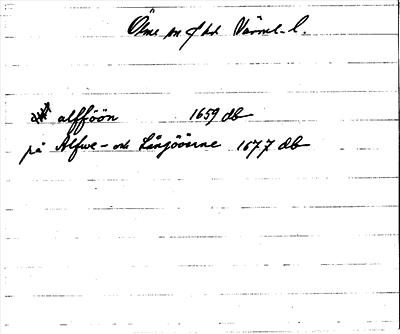 Ölme sn f hd Värml. l.
alfföön 1659 db
på Alfwe- och Långöösne 1677 db